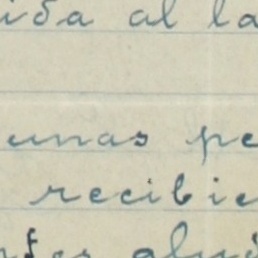 ida al la
unas pe
recibie